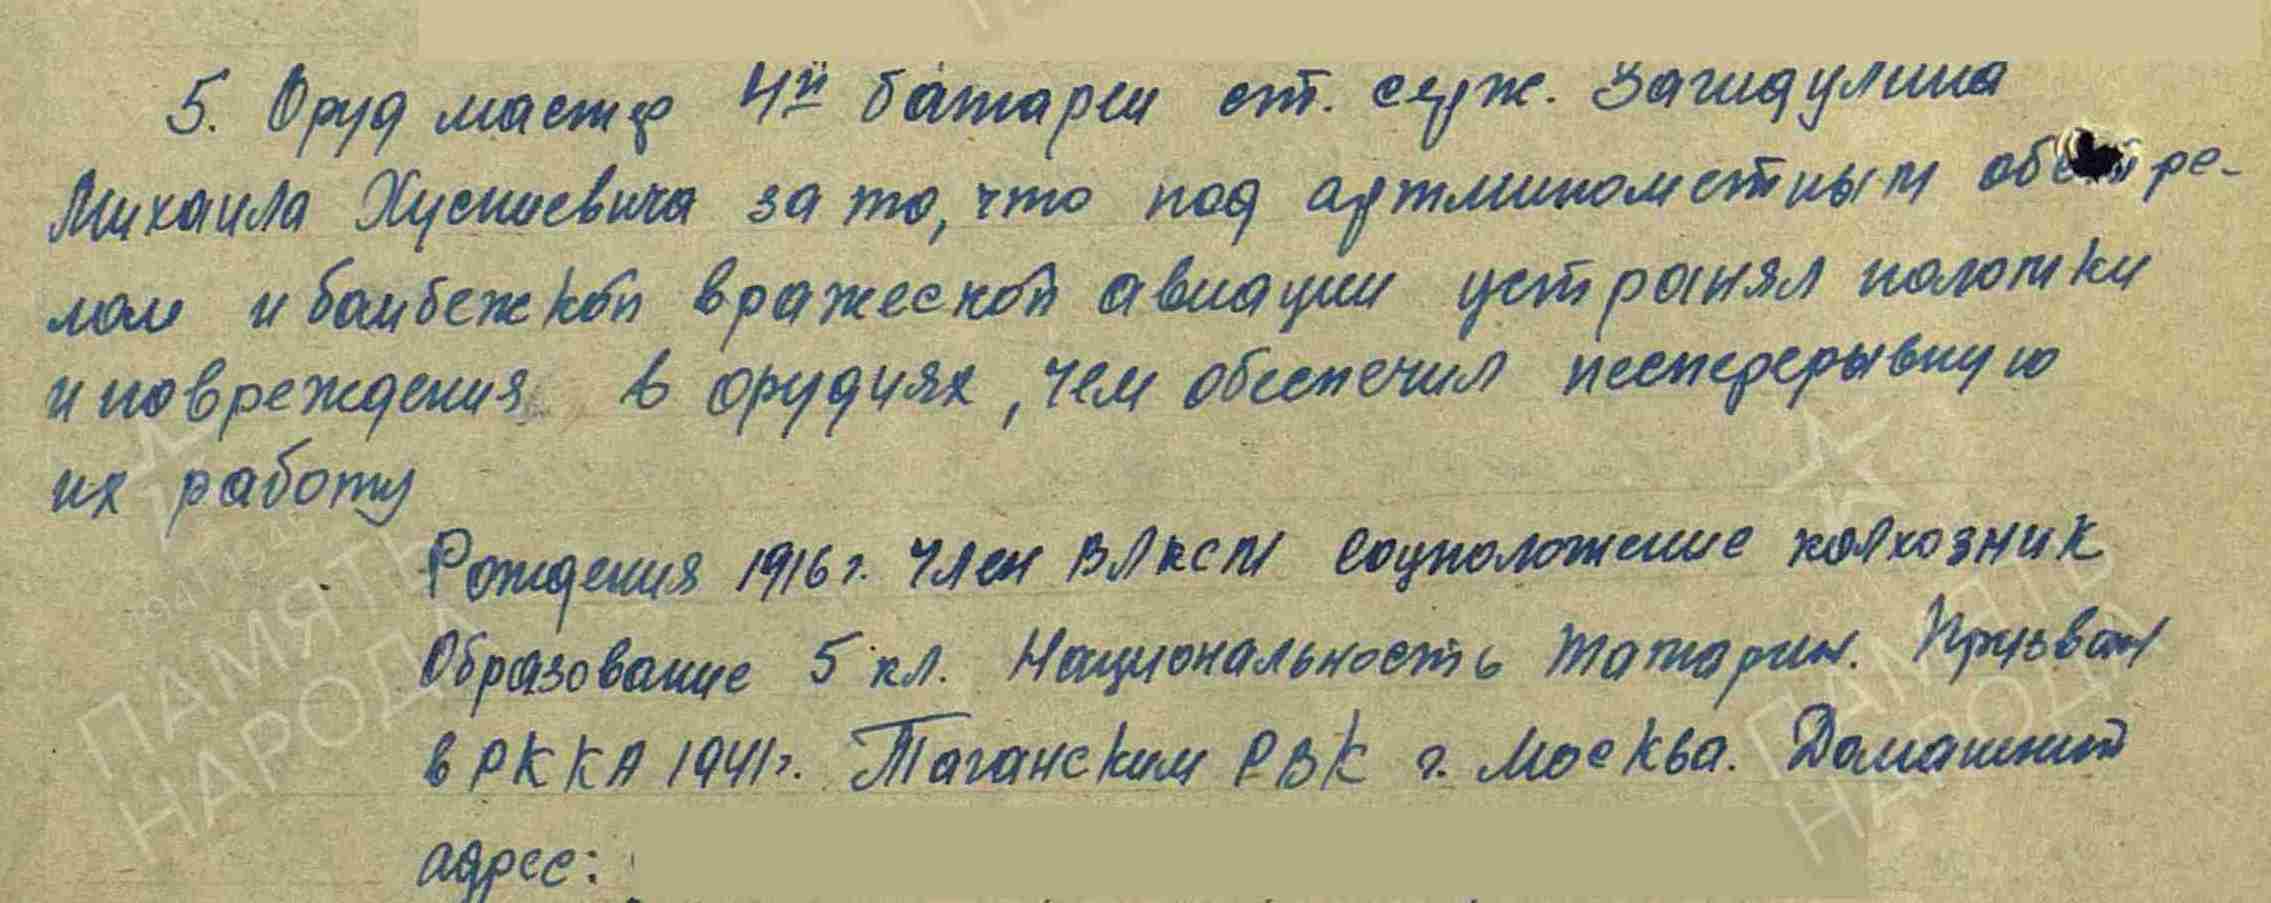 5. Оруд мастер 4й батареи ст. серж. Загидулина
Михаила Хусниевича за то, что под артминометным обстре-
лом и бомбежкой вражеской авиации устранял поломки
и повреждения в орудиях, чем обеспечил неспрерывную
их работу
Рождения 1916 г. член ВЛКСМ Соцположение колхозник
Образование 5 кл. Национальность татарин. Призван
в РККА 1941 г. Таганским РВК г. Москва. Домашний
адрес:
1941 1945
ПАМЯТЬ
НАРОДА
ПАМЯТЬ
НАРОДА